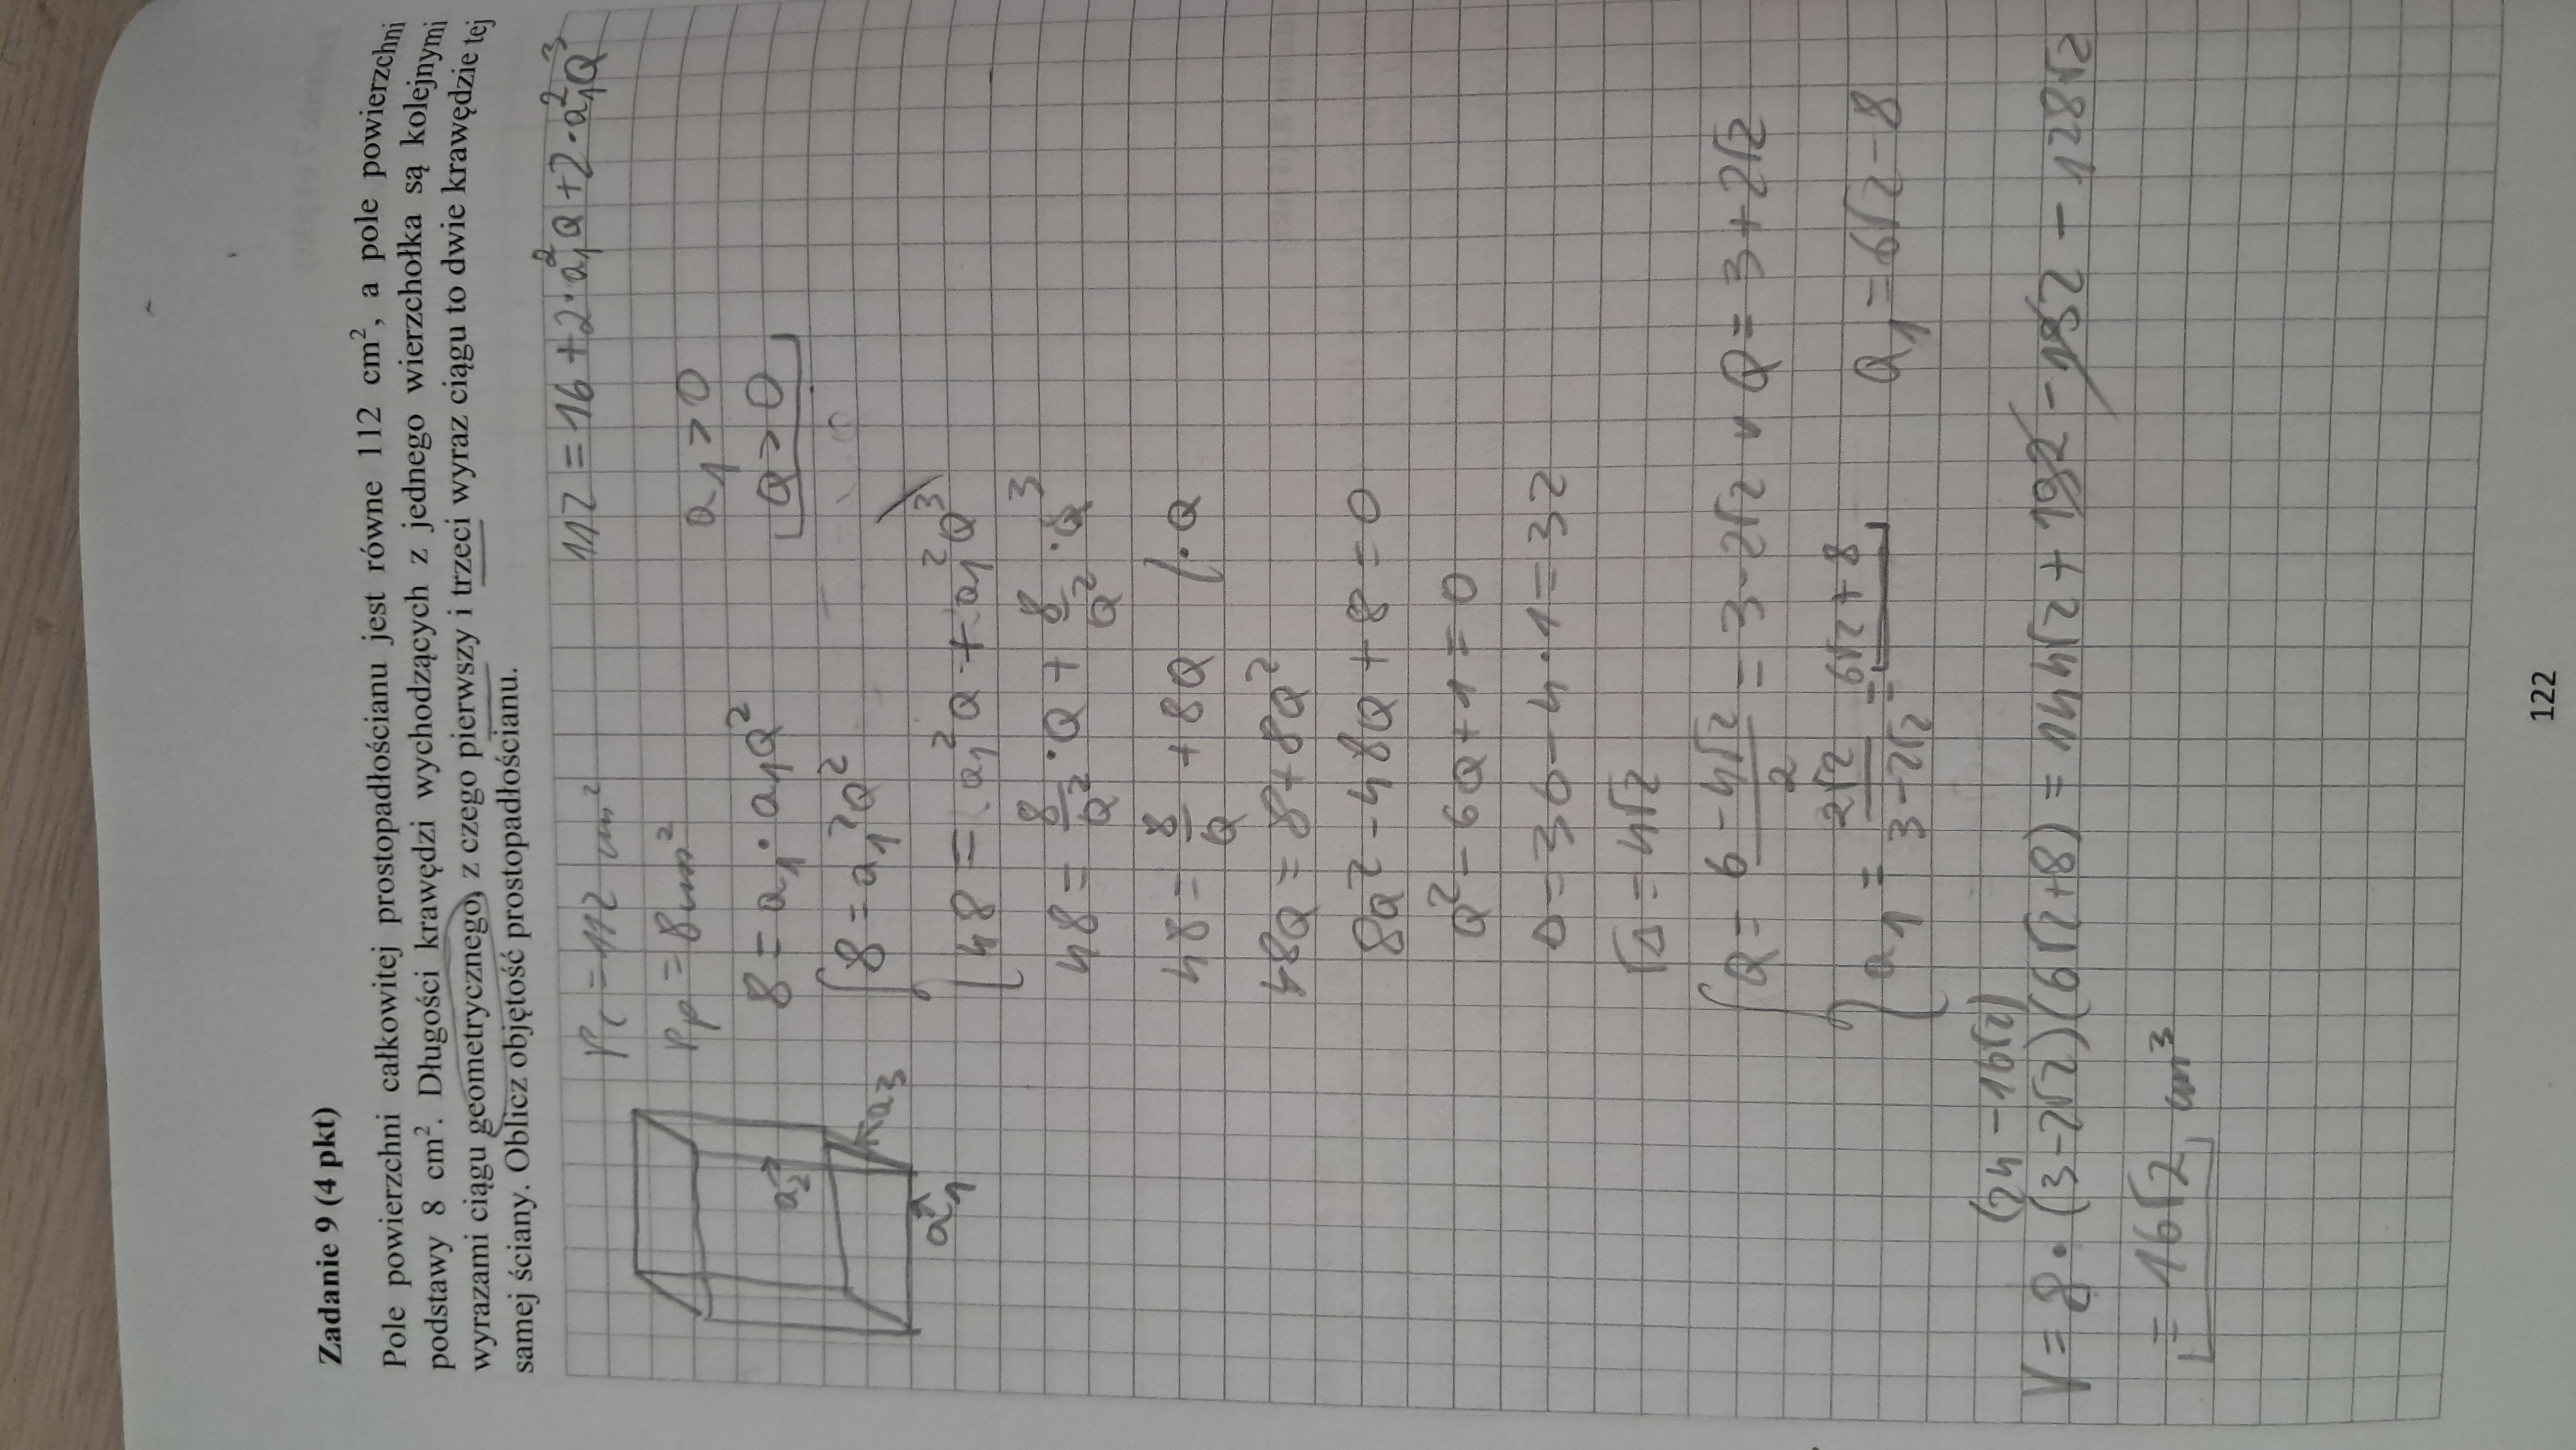 Zadanie 9 (4 pkt)
Pole powierzchni całkowitej prostopadłościanu jest równe 112 cm², a pole powierzchni
podstawy 8 cm². Długości krawędzi wychodzących z jednego wierzchołka są kolejnymi
wyrazami ciągu geometrycznego, z czego pierwszy i trzeci wyraz ciągu to dwie krawędzie tej
samej ściany. Oblicz objętość prostopadłościanu.
Pc = 112 cm²
112 = 16 + 2·a₁²Q + 2·a₁²Q³
Pp = 8 cm²
a₁ > 0
8 = a₁ · a₁Q²
Q > 0
8 = a₁²Q²
48 = a₁²Q + a₁²Q³
48 = 8/Q² · Q + 8/Q² · Q³
48 = 8/Q + 8Q /·Q
48Q = 8 + 8Q²
8Q² - 48Q + 8 = 0
Q² - 6Q + 1 = 0
Δ = 36 - 4·1 = 32
√Δ = 4√2
Q = (6 - 4√2)/2 = 3 - 2√2 v Q = 3 + 2√2
a₁ = 2√2/(3 - 2√2) = 6√2 + 8
a₁ = 6√2 - 8
a₂
a₃
a₁
(24 - 16√2)
V = 8 · (3 - 2√2)(6√2 + 8) = 144√2 + 192 - 192 - 128√2
= 16√2 cm³
122